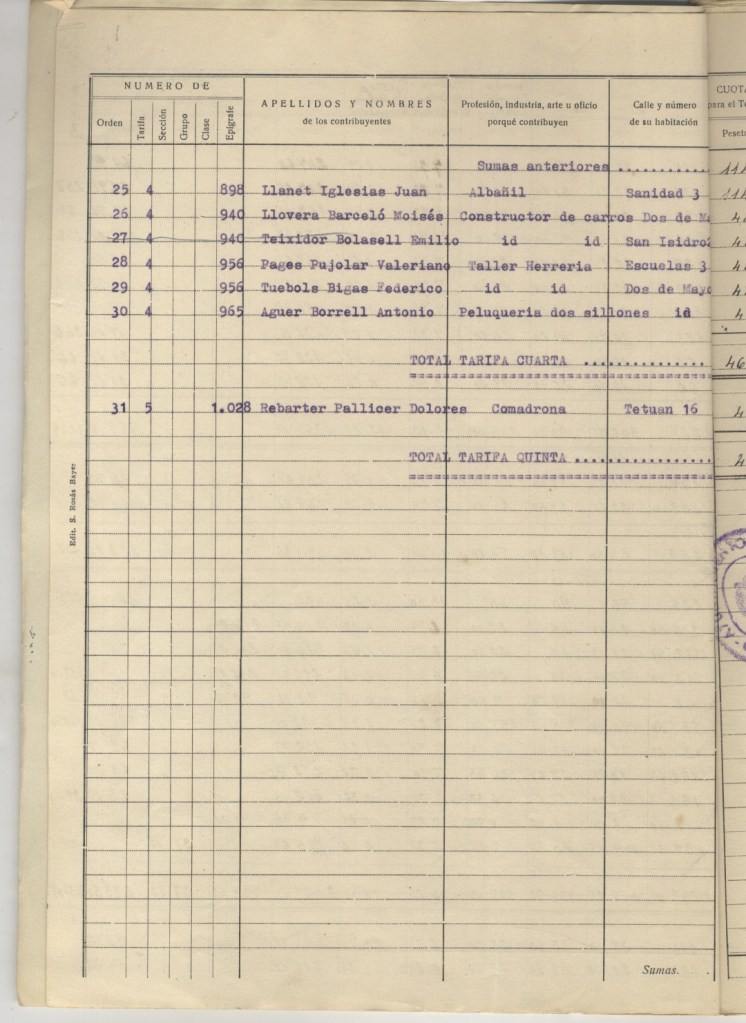 NUMERO DE
Orden Tarifa Sección Grupo Clase Epígrafe
APELLIDOS Y NOMBRES
de los contribuyentes
Profesión, industria, arte u oficio
porqué contribuyen
Calle y número
de su habitación
CUOTA
para el Te
Peseta
Sumas anteriores ...........
25 4 898 Llanet Iglesias Juan Albañil Sanidad 3
26 4 940 Llovera Barceló Moisés Constructor de carros Dos de Ma
27 4 940 Teixidor Bolasell Emilio id id San Isidro
28 4 956 Pages Pujolar Valeriano Taller Herreria Escuelas 3
29 4 956 Tuebols Bigas Federico id id Dos de Mayo
30 4 965 Aguer Borrell Antonio Peluqueria dos sillones id
TOTAL TARIFA CUARTA ............... 46
31 5 1.028 Rebarter Pallicer Dolores Comadrona Tetuan 16
TOTAL TARIFA QUINTA ................
Edit. S. Rosás Bayer
Sumas.